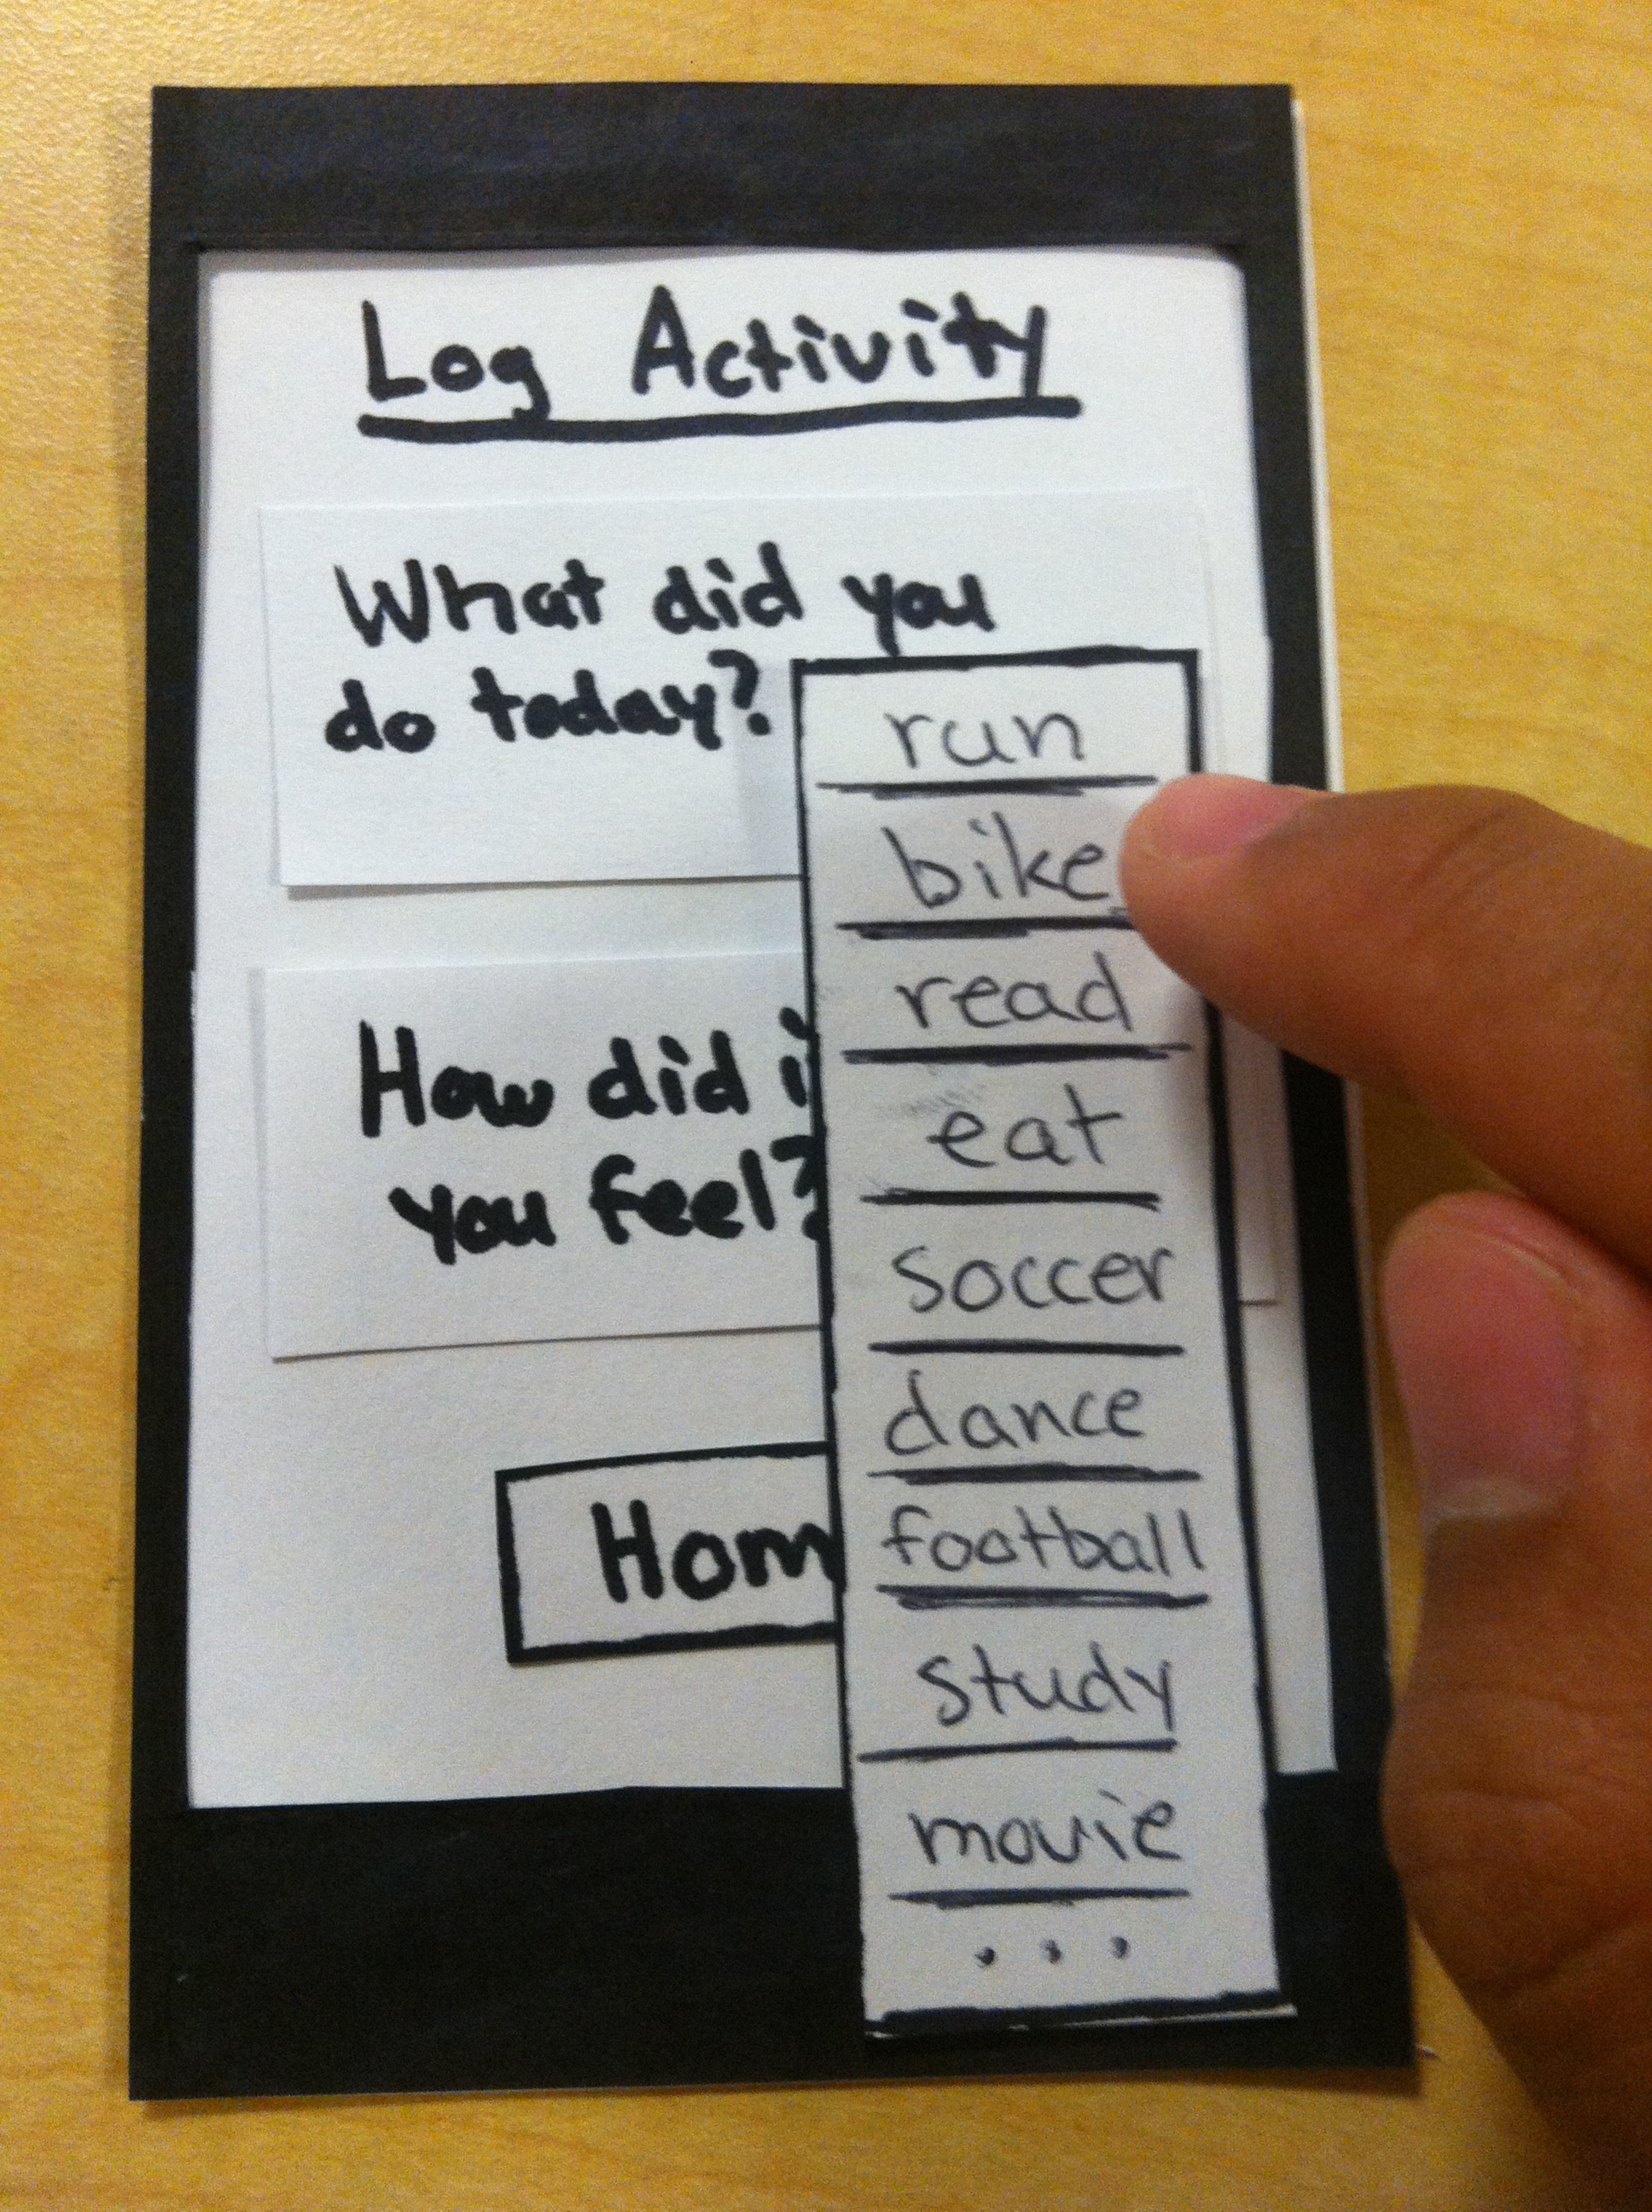 Log Activity
What did you
do today?
How did i
you feel?
Hom
run
bike
read
eat
soccer
dance
football
study
movie
...